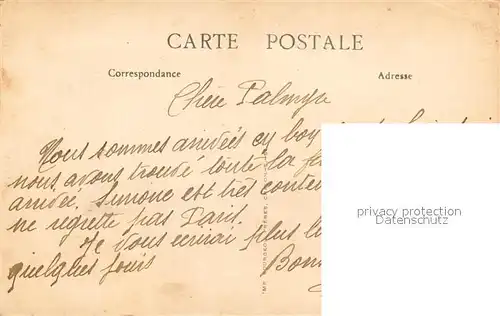 CARTE POSTALE
Correspondance Adresse
Chère Palmyre
Nous sommes arrivées en bon
nous avons trouvé toute la
arrivée. Simone est très conten
ne regrette pas Paris.
Je vous écrirai plus
quelques jours Bon
privacy protection
Datenschutz